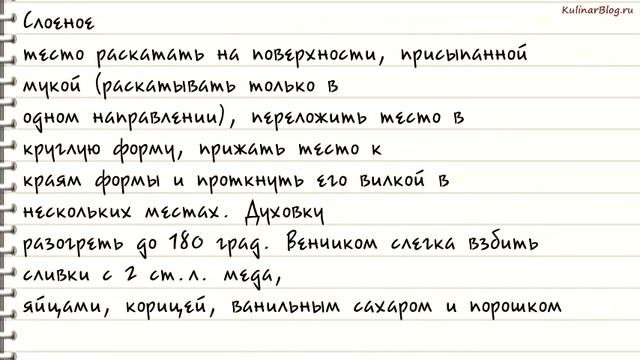 KulinarBlog.ru
Слоеное
тесто раскатать на поверхности, присыпанной
мукой (раскатывать только в
одном направлении), переложить тесто в
круглую форму, прижать тесто к
краям формы и проткнуть его вилкой в
нескольких местах. Духовку
разогреть до 180 град. Венчиком слегка взбить
сливки с 2 ст.л. меда,
яйцами, корицей, ванильным сахаром и порошком